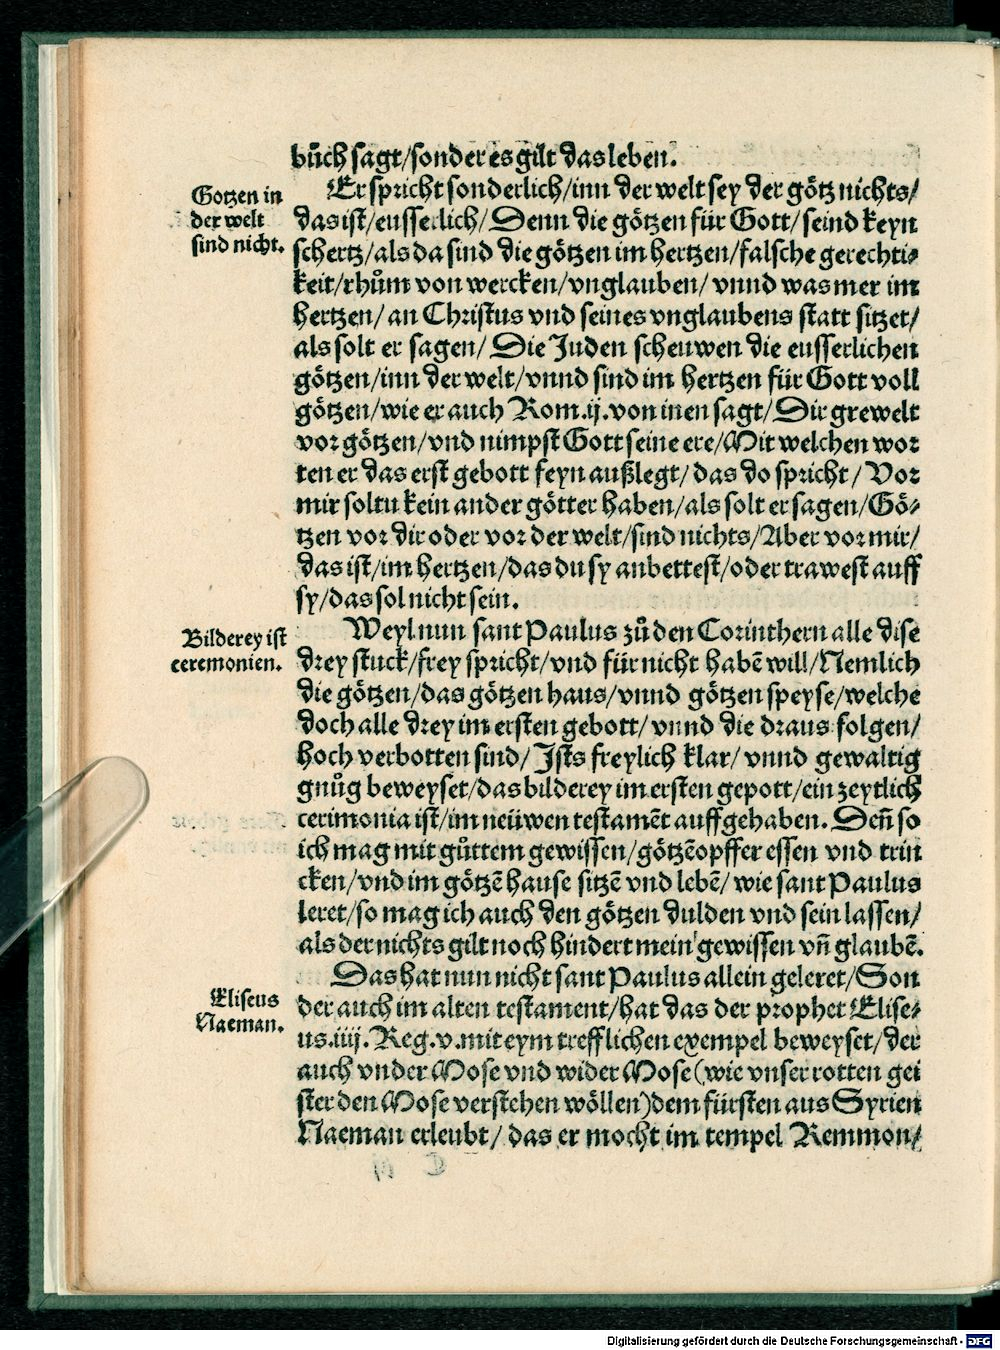 bůch sagt/sonder es gilt das leben.
Er spricht sonderlich/inn der welt sey der götz nichts/
Gotzen in
der welt
sind nicht.
das ist/eusserlich/Denn die götzen für Gott/seind keyn
schertz/als da sind die götzen im hertzen/falsche gerechti⸗
keit/rhům von wercken/vnglauben/ vnnd was mer im
hertzen/ an Christus vnd seines vnglaubens statt sitzet/
als solt er sagen/ Die Juden scheuwen die eusserlichen
götzen/inn der welt/vnnd sind im hertzen für Gott voll
götzen/wie er auch Rom.ij.von inen sagt/Dir grewelt
vor götzen/vnd nimpst Gott seine ere/Mit welchen wor
ten er das erst gebott feyn außlegt/das do spricht/ Vor
mir soltu kein ander götter haben/als solt er sagen/Gö⸗
tzen vor dir oder vor der welt/sind nichts/Aber vor mir/
das ist/im hertzen/das du sy anbettest/oder trawest auff
sy/das sol nicht sein.
Bilderey ist
ceremonien.
Weyl nun sant Paulus zů den Corinthern alle dise
drey stuck/frey spricht/vnd für nicht habē will/Nemlich
die götzen/das götzen haus/vnnd götzen speyse/welche
doch alle drey im ersten gebott/vnnd die draus folgen/
hoch verbotten sind/Ists freylich klar/vnnd gewaltig
gnůg beweyset/das bilderey im ersten gepott/ein zeytlich
cerimonia ist/im neüwen testamēt auffgehaben. Deñ so
ich mag mit gůttem gewissen/götzēopffer essen vnd trin
cken/vnd im götzē hause sitzē vnd lebē/ wie sant Paulus
leret/so mag ich auch den götzen dulden vnd sein lassen/
als der nichts gilt noch hindert mein gewissen vñ glaubē.
Das hat nun nicht sant Paulus allein geleret/Son
Eliseus
Naeman.
der auch im alten testament/hat das der prophet Elise⸗
us.iiij. Reg.v.mit eym trefflichen exempel beweyset/der
auch vnder Mose vnd wider Mose(wie vnser rotten gei
ster den Mose verstehen wöllen)dem fürsten aus Syrien
Naeman erleubt/ das er mocht im tempel Remmon/
Digitalisierung gefördert durch die Deutsche Forschungsgemeinschaft - DFG